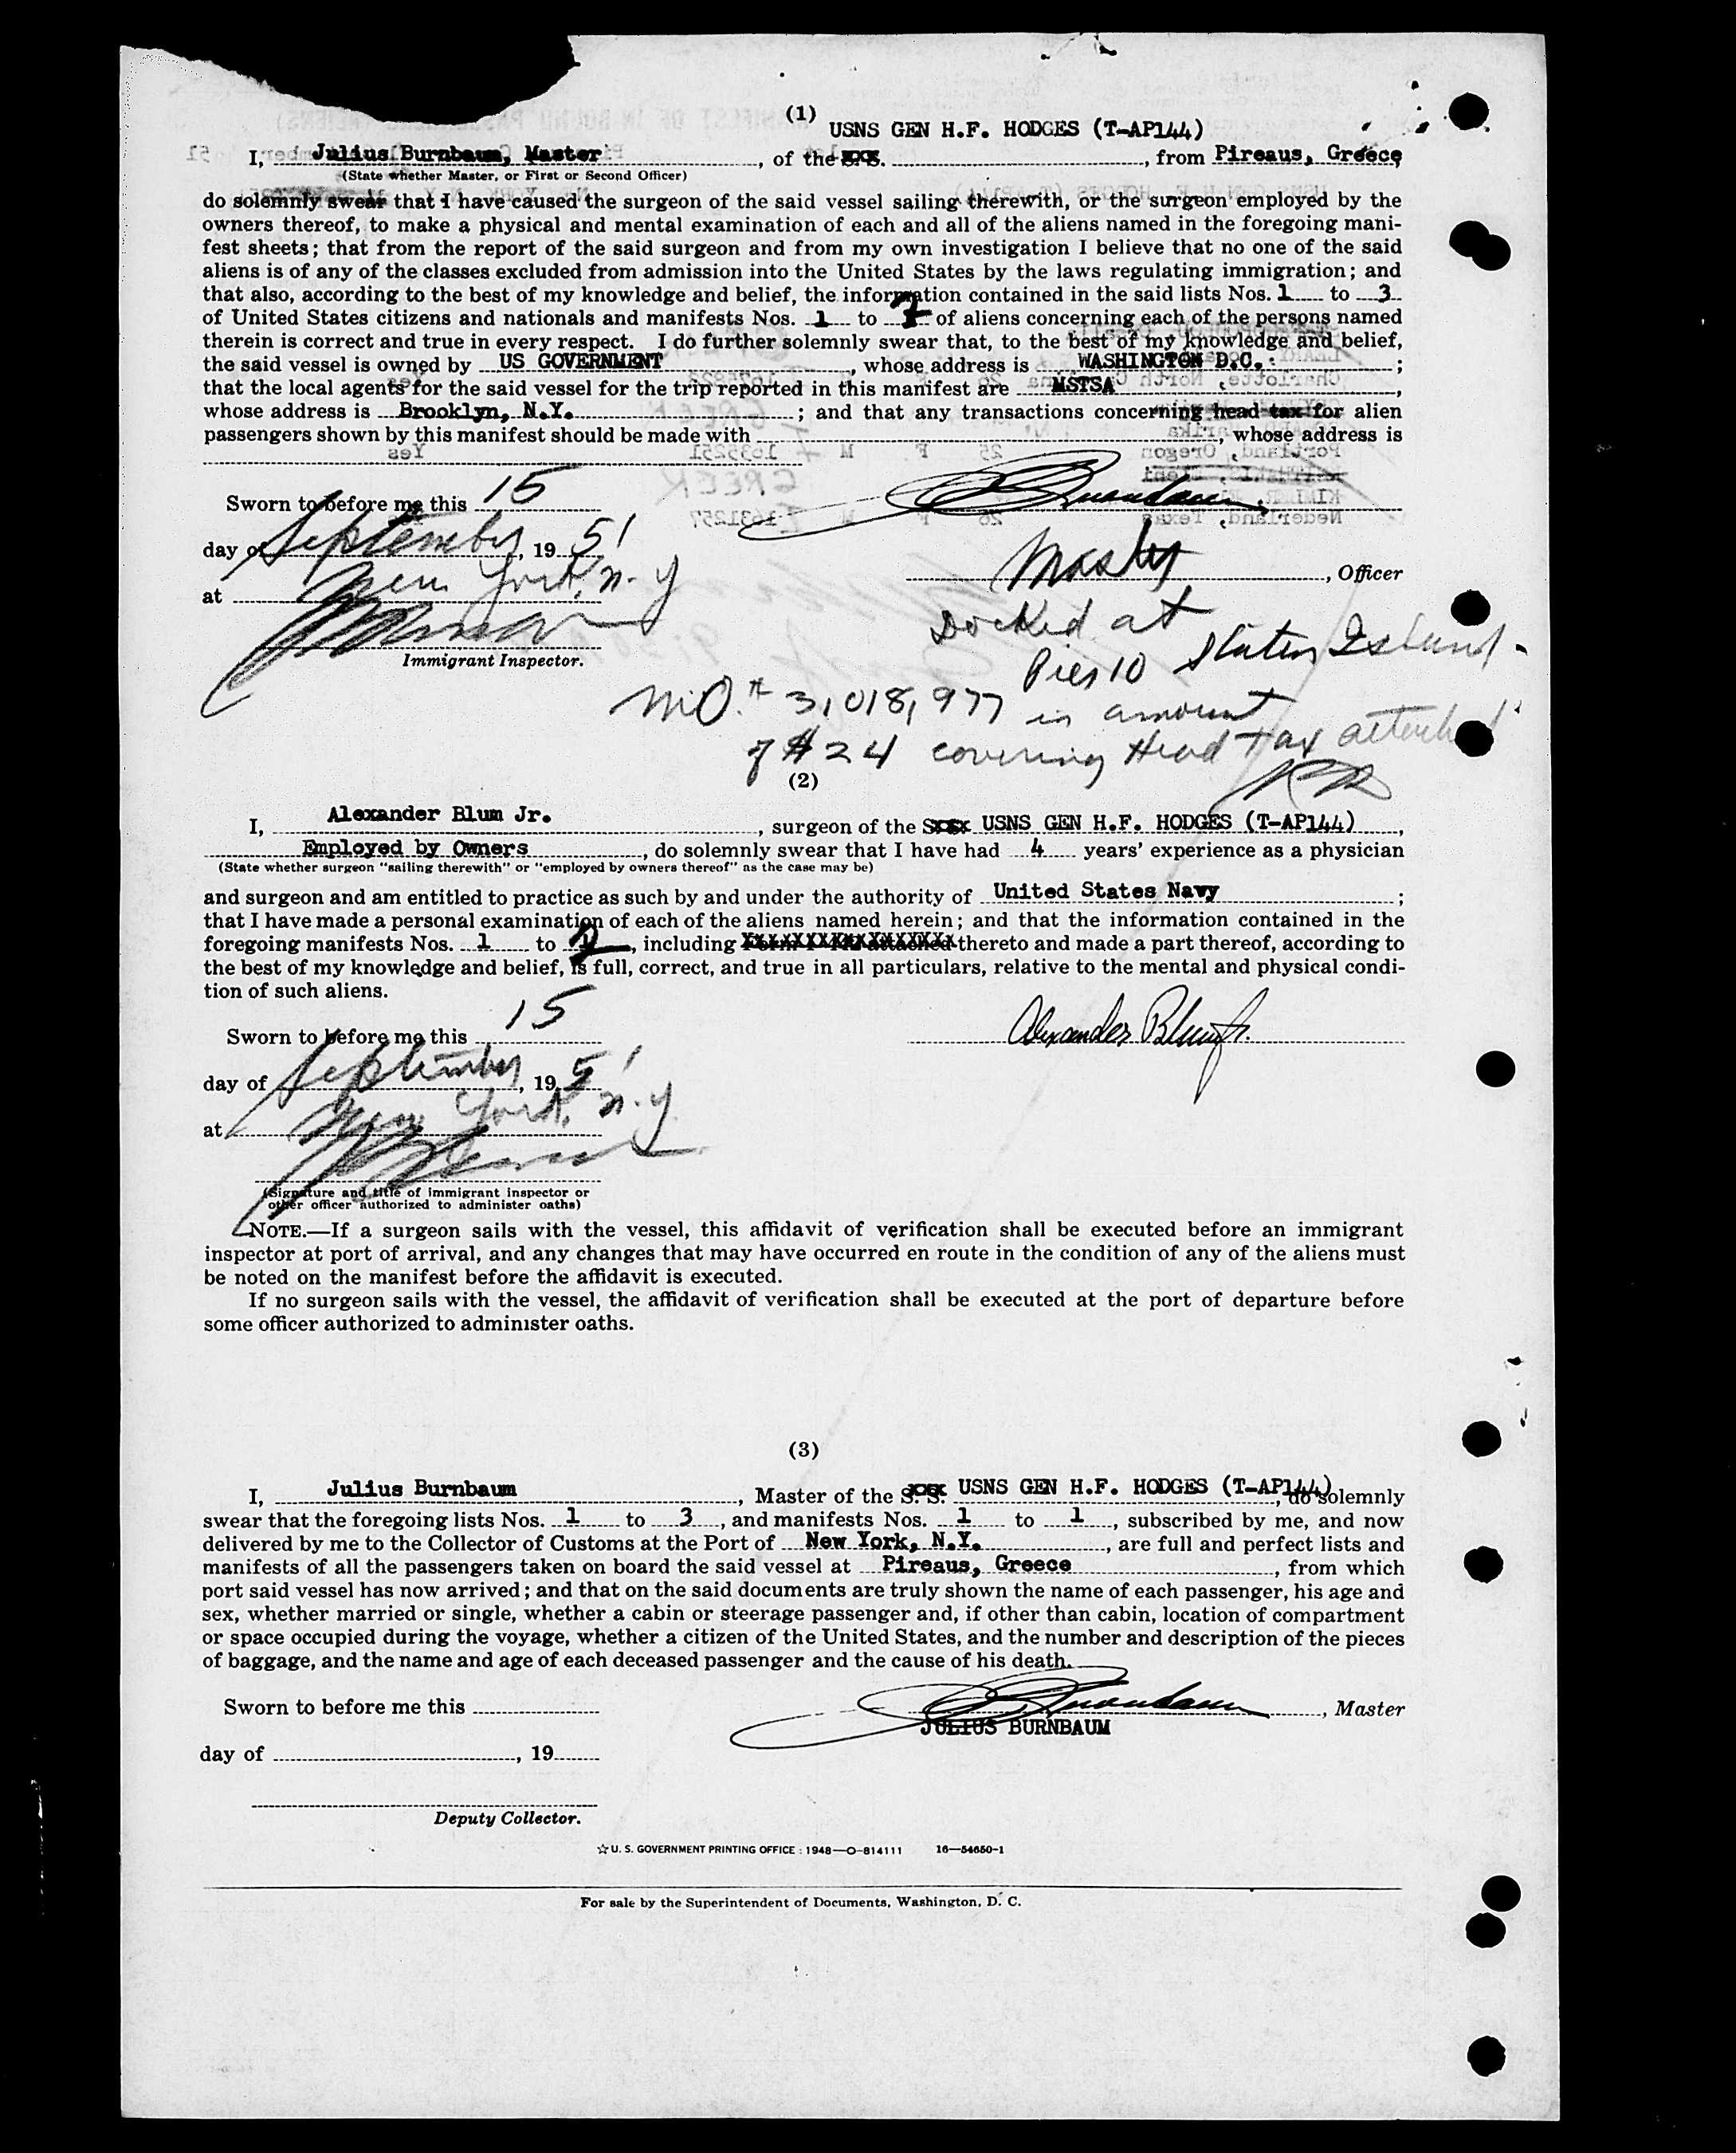 (1)
USNS GEN H.F. HODGES (T-AP144)
I, Julius Burnbaum, Master, of the S. S. , from Pireaus, Greece
(State whether Master, or First or Second Officer)
do solemnly swear that I have caused the surgeon of the said vessel sailing therewith, or the surgeon employed by the
owners thereof, to make a physical and mental examination of each and all of the aliens named in the foregoing mani-
fest sheets; that from the report of the said surgeon and from my own investigation I believe that no one of the said
aliens is of any of the classes excluded from admission into the United States by the laws regulating immigration; and
that also, according to the best of my knowledge and belief, the information contained in the said lists Nos. 1 to 3
of United States citizens and nationals and manifests Nos. 1 to of aliens concerning each of the persons named
therein is correct and true in every respect. I do further solemnly swear that, to the best of my knowledge and belief,
the said vessel is owned by US GOVERNMENT, whose address is WASHINGTON D.C. ;
that the local agents for the said vessel for the trip reported in this manifest are MSTSA,
whose address is Brooklyn, N.Y. ; and that any transactions concerning head tax for alien
passengers shown by this manifest should be made with , whose address is
Sworn to before me this 15
day of September, 19 51
at New York, N.Y
Immigrant Inspector.
Master, Officer
Docked at
Pier 10 Staten Island -
M.O. # 3,018,977 in amount
of $24 covering Head Tax attached
(2)
I, Alexander Blum Jr. , surgeon of the USNS GEN H.F. HODGES (T-AP144),
Employed by Owners, do solemnly swear that I have had 4 years' experience as a physician
(State whether surgeon "sailing therewith" or "employed by owners thereof" as the case may be)
and surgeon and am entitled to practice as such by and under the authority of United States Navy ;
that I have made a personal examination of each of the aliens named herein; and that the information contained in the
foregoing manifests Nos. 1 to 2, including thereto and made a part thereof, according to
the best of my knowledge and belief, is full, correct, and true in all particulars, relative to the mental and physical condi-
tion of such aliens.
Sworn to before me this 15
Alexander Blum Jr.
day of September, 19 51
at New York, N.Y.
(Signature and title of immigrant inspector or
other officer authorized to administer oaths)
NOTE.—If a surgeon sails with the vessel, this affidavit of verification shall be executed before an immigrant
inspector at port of arrival, and any changes that may have occurred en route in the condition of any of the aliens must
be noted on the manifest before the affidavit is executed.
If no surgeon sails with the vessel, the affidavit of verification shall be executed at the port of departure before
some officer authorized to administer oaths.
(3)
I, Julius Burnbaum, Master of the S. S. USNS GEN H.F. HODGES (T-AP144), do solemnly
swear that the foregoing lists Nos. 1 to 3, and manifests Nos. 1 to 1, subscribed by me, and now
delivered by me to the Collector of Customs at the Port of New York, N.Y. , are full and perfect lists and
manifests of all the passengers taken on board the said vessel at Pireaus, Greece, from which
port said vessel has now arrived; and that on the said documents are truly shown the name of each passenger, his age and
sex, whether married or single, whether a cabin or steerage passenger and, if other than cabin, location of compartment
or space occupied during the voyage, whether a citizen of the United States, and the number and description of the pieces
of baggage, and the name and age of each deceased passenger and the cause of his death.
Sworn to before me this
, Master
JULIUS BURNBAUM
day of , 19
Deputy Collector.
☆ U. S. GOVERNMENT PRINTING OFFICE : 1948—O-814111 16—54650-1
For sale by the Superintendent of Documents, Washington, D. C.